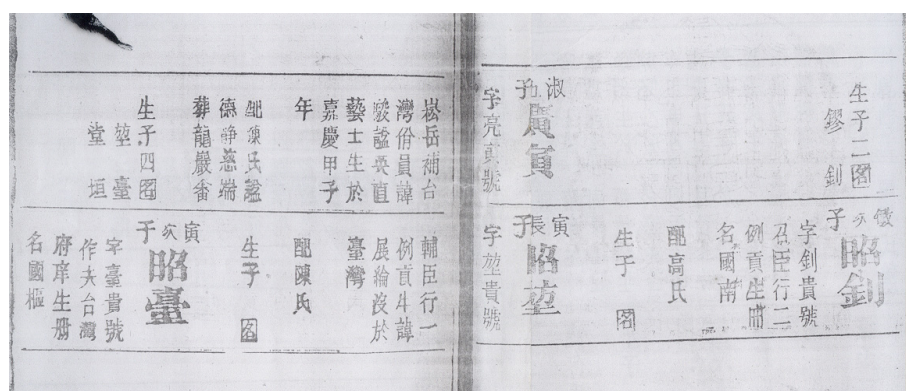 生子二图
鏐 釗
淑九子
廣寅
字亮寅號
崧岳補台
灣份員諱
駿謚英直
藝士生於
嘉慶甲子
年
配陳氏謚
德靜慈端
葬龍巖香
生子四图
堃 臺
堂 垣
儀次子
昭釗
字釗貴號
召臣行二
例貢生冊
名國南
配高氏
生子 图
寅長子
昭堃
字堃貴號
輔臣行一
例貢生諱
展綸沒於
臺灣
配陳氏
生子 图
寅次子
昭臺
字臺貴號
作夫台灣
府庠生册
名國樞